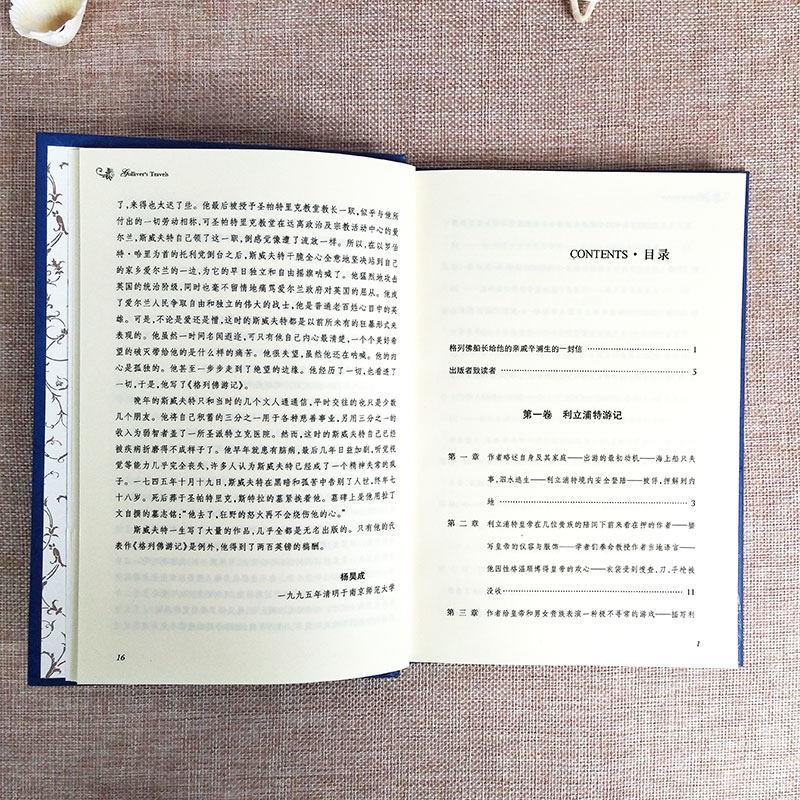 Gulliver's Travels
了，来得也太迟了些。他最后被授予圣帕特里克教堂教长一职，似乎与他所
付出的一切劳动相称，可圣帕特里克教堂在远离政治及宗教活动中心的爱
尔兰，斯威夫特自己领了这一职，倒感觉像遭了流放一样。所以，在以罗伯
特·哈里为首的托利党倒台之后，斯威夫特干脆全心全意地坚决站到自己
的家乡爱尔兰的一边，为它的早日独立和自由摇旗呐喊了。他猛烈地攻击
英国的统治阶级，同时也毫不留情地痛骂爱尔兰政府对英国的屈从。他成
了爱尔兰人民争取自由和独立的伟大的战士，他是普通老百姓心目中的英
雄。可是，不论是爱还是憎，这时的斯威夫特都是以前所未有的狂暴形式来
表现的。他虽然一时间名闻遐迩，可只有他自己内心最清楚，一个个美好希
望的破灭带给他的是什么样的痛苦。他很失望，虽然他还在呐喊。他的内
心是孤独的。他甚至一步步走到了绝望的边缘。他经历了一切，也看透了
一切，于是，他写了《格列佛游记》。
晚年的斯威夫特只和当时的几个文人通通信，平时交往的也只是少数
几个朋友。他将自己积蓄的三分之一用于各种慈善事业，另用三分之一的
收入为弱智者盖了一所圣派特立克医院。然而，这时的斯威夫特自己已经
被疾病折磨得不成样子了。他早年就患有脑病，最后几年日益加剧，听觉视
觉等能力几乎完全丧失，许多人认为斯威夫特已经成了一个精神失常的疯
子。一七四五年十月十九日，斯威夫特在黑暗和孤苦中告别了人世，终年七
十八岁。死后葬于圣帕特里克，斯特拉的墓紧挨着他。墓碑上是他用拉丁
文自撰的墓志铭：“他去了，狂野的怒火再不会烧伤他的心。”
斯威夫特一生写了大量的作品，几乎全都是无名出版的。只有他的代
表作《格列佛游记》是例外，他得到了两百英镑的稿酬。
杨昊成
一九九五年清明于南京师范大学
16
CONTENTS·目录
格列佛船长给他的亲戚辛浦生的一封信 1
出版者致读者 5
第一卷 利立浦特游记
第一章 作者略述自身及其家庭——出游的最初动机——海上船只失
事，泅水逃生——利立浦特境内安全登陆——被俘，押解到内
地 3
第二章 利立浦特皇帝在几位贵族的陪同下前来看在押的作者——描
写皇帝的仪容与服饰——学者们奉命教授作者当地语言——
他因性格温顺博得皇帝的欢心——衣袋受到搜查，刀、手枪被
没收 11
第三章 作者给皇帝和男女贵族表演一种极不寻常的游戏——描写利
1